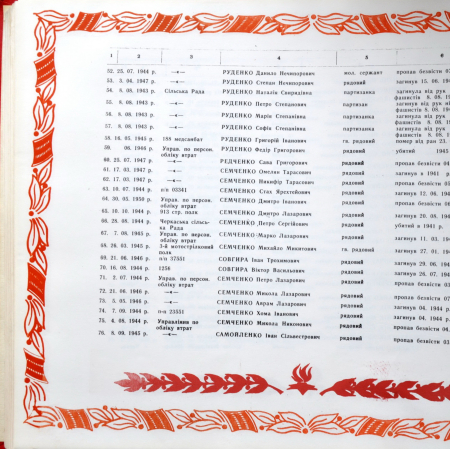 1 2 3 4 5 6
52. 25. 07. 1944 р. —«— РУДЕНКО Данило Нечипорович мол. сержант пропав безвісти 03
53. 3. 04. 1947 р. —«— РУДЕНКО Степан Нечипорович рядовий загинув 15. 06. 194
54. 8. 08. 1943 р. Сільська Рада РУДЕНКО Наталія Свиридівна партизанка загинула від рук
фашистів 8. 08. 19
55. 8. 08. 1943 р. —«— РУДЕНКО Петро Степанович партизан загинув від рук
фашистів 8. 08. 19
56. 8. 08. 1943 р. —«— РУДЕНКО Марія Степанівна партизанка загинула від рук
фашистів 8. 08. 19
57. 8. 08. 1943 р. —«— РУДЕНКО Софія Степанівна партизанка загинула від рук
фашистів 8. 08.
58. 16. 05. 1945 р. 188 медсанбат РУДЕНКО Григорій Іванович гв. рядовий помер від ран 23.
59. 06. 1946 р. Управ. по персон.
обліку втрат РУДЕНКО Федір Григорович рядовий убитий 1943
60. 25. 07. 1947 р. —«— РЕДЧЕНКО Сава Григорович рядовий пропав безвісти 04
61. 17. 03. 1947 р. —«— СЕМЧЕНКО Омелян Тарасович рядовий загинув в 1941 р.
62. 17. 03. 1947 р. —«— СЕМЧЕНКО Никифір Тарасович рядовий пропав безвісти
63. 10. 07. 1944 р. п/п 03341 СЕМЧЕНКО Стах Ярехтейович рядовий загинув 12. 06. 194
64. 30. 05. 1950 р. Управ. по персон.
обліку втрат СЕМЧЕНКО Дмитро Іванович рядовий пропав безвісти 0
65. 16. 10. 1944 р. 913 стр. полк СЕМЧЕНКО Дмитро Лазарович рядовий загинув 20. 08. 194
66. 28. 06. 1944 р. Черкаська сільсь-
ка Рада СЕМЧЕНКО Петро Сергійович рядовий убитий в 1941 р.
67. 7. 08. 1945 р. Управ. по персон.
обліку втрат СЕМЧЕНКО Марко Лазарович рядовий загинув 11. 03. 194
68. 26. 03. 1945 р. 3-й мотострілковий
полк СЕМЧЕНКО Михайло Микитович гв. рядовий загинув 27. 01. 194
69. 21. 06. 1946 р. п/п 37551 СОВГИРА Іван Трохимович рядовий загинув 29. 06. 194
70. 16. 08. 1944 р. 1256 СОВГИРА Віктор Васильович рядовий загинув 26. 07. 194
71. 2. 07. 1944 р. Управ. по персон.
обліку втрат СЕМЧЕНКО Петро Лазарович рядовий пропав безвісти 03
72. 21. 06. 1946 р. —«— СЕМЧЕНКО Микола Лазарович рядовий пропав безвісти 0
73. 3. 05. 1946 р. —«— СЕМЧЕНКО Аврам Лазарович рядовий пропав безвісти 07
74. 7. 09. 1944 р. п-п 23331 СЕМЧЕНКО Хома Іванович рядовий загинув 04. 1944 р
75. 4. 09. 1944 р. Управління по
обліку втрат СЕМЧЕНКО Микола Никонович рядовий загинув 06. 194
76. 8. 09. 1945 р. —«— САМОЙЛЕНКО Іван Сільвестрович рядовий пропав безвісти 06